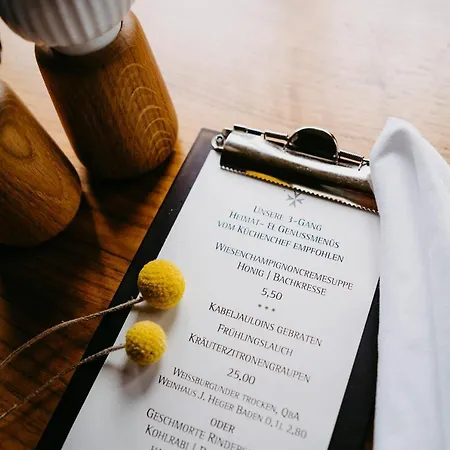 Unsere 3-Gang
Heimat- El Genussmenüs
vom Küchenchef empfohlen
Wiesenchampignoncremesuppe
Honig | Bachkresse
5,50
***
Kabeljauloins gebraten
Frühlingslauch
Kräuterzitronengraupen
25,00
Weissburgunder trocken, QbA
Weinhaus J. Heger Baden 0,1l 2,80
oder
Geschmorte Rinder
Kohlrabi |